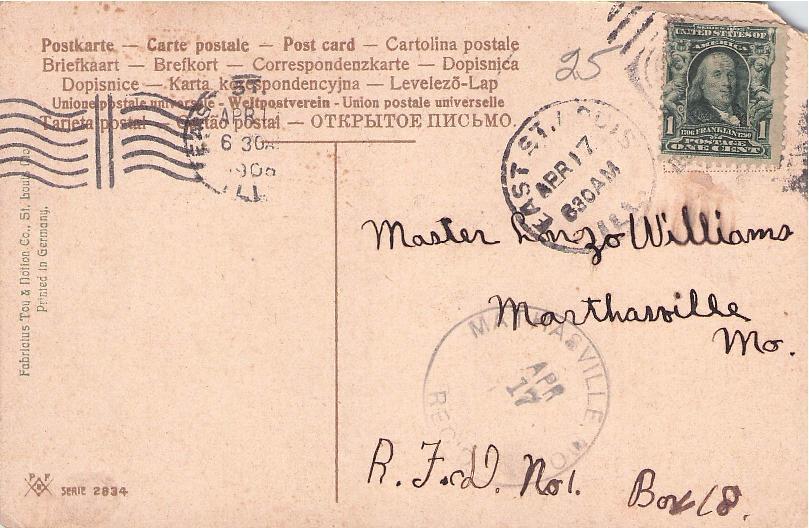 Postkarte — Carte postale — Post card — Cartolina postale
Briefkaart — Brefkort — Correspondenzkarte — Dopisnica
Dopisnice — Karta korespondencyjna — Levelező-Lap
Union postale universelle - Weltpostverein - Union postale universelle
Tarjeta postal — Cartão postal — ОТКРЫТОЕ ПИСЬМО.
25
UNITED STATES OF
AMERICA
1706 FRANKLIN 1790
1 1
POSTAGE
ONE CENT
EAST
APR
6 30A
EAST ST. LOUIS
APR 17
630AM
ILL.
Master Lonzo Williams
Marthasville
Mo.
MARTHASVILLE, MO.
APR
17
R. F. D. No 1.
Box 18.
Fabricius Toy & Notion Co., St. Louis, Mo.
Printed in Germany.
P F
B
SERIE 2834